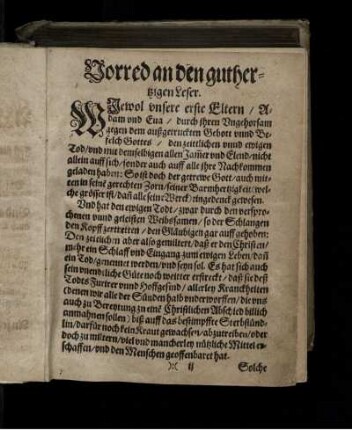 Vorred an den guther-
tzigen Leser.
WJewol vnsere erste Eltern / A-
dam vnd Eua / durch jhren Vngehorsam
gegen dem außgetruckten Gebott vnnd Be-
felch Gottes / den zeittlichen vnnd ewigen
Tod / vnd mit demselbigen allen Jam̃er vnd Elend / nicht
allein auff sich / sonder auch auff alle jhre Nachkommen
geladen haben: So ist doch der getrewe Gott / auch mit-
ten in seine gerechten Zorn / seiner Barmhertzigkeit (wel-
che grösser ist / daß alle seine Werck) eingedenck gewesen.
Vnd hat den ewigen Todt / zwar durch den verspro-
chenen vnnd geleisten Weibssamen / so der Schlangen
den Kopff zertretten / den Gläubigen gar auff gehoben:
Den zeitlichen aber also gemiltert / daß er den Christen /
mehr ein Schlaff vnd Eingang zum ewigen Leben / daß
ein Tod / genennet werden / vnd seyn sol. Es hat sich auch
sein vnendliche Güte noch weitter erstreckt / daß sie deß
Todts Furirer vnnd Hoffgesind / allerley Kranckheiten
(denen wir alle der Sünden halb vnderworffen / die vns
auch zu Bereytung zu eine Christlichen Abschied billich
anmahnen sollen) biß auff das bestimpffte Sterbstünd-
lin / darfür noch kein Kraut gewachsen / abzutreiben / oder
doch zu miltern / viel vnd mancherley nützliche Mittel er-
schaffen / vnd den Menschen geoffenbaret hat.
)( ij Solche